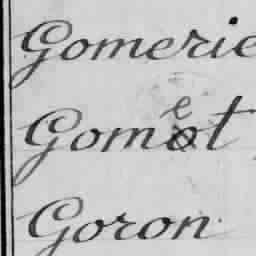 Gomerie
Gomet
Goron